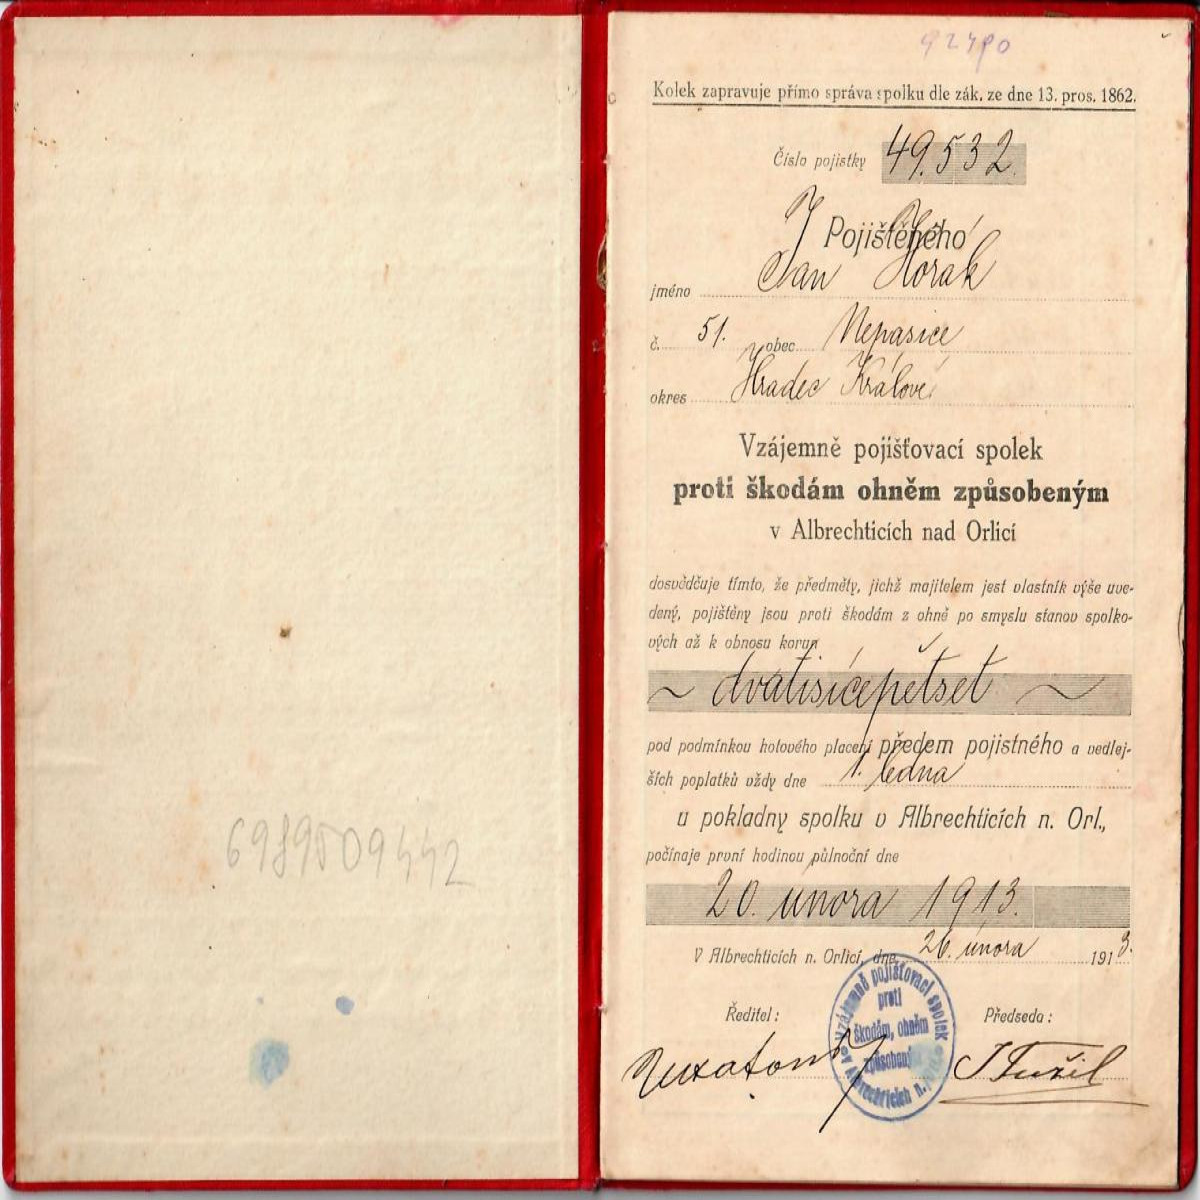 6989509442
92490
Kolek zapravuje přímo správa spolku dle zák. ze dne 13. pros. 1862.
Číslo pojistky 49.532.
Pojištěného
jméno Jan Horák
č. 51. obec Nepasice
okres Hradec Králové
Vzájemně pojišťovací spolek
proti škodám ohněm způsobeným
v Albrechticích nad Orlicí
dosvědčuje tímto, že předměty, jichž majitelem jest vlastník výše uve-
dený, pojištěny jsou proti škodám z ohně po smyslu stanov spolko-
vých až k obnosu korun
~ dvatisícepětset ~
pod podmínkou hotového placení předem pojistného a vedlej-
ších poplatků vždy dne 1. ledna
u pokladny spolku v Albrechticích n. Orl.,
počínaje první hodinou půlnoční dne
20. února 1913.
V Albrechticích n. Orlicí, dne 26. února 1913.
Ředitel: Předseda:
Vzájemně pojišťovací spolek
proti
škodám, ohněm
způsobeným
v Albrechticích n.